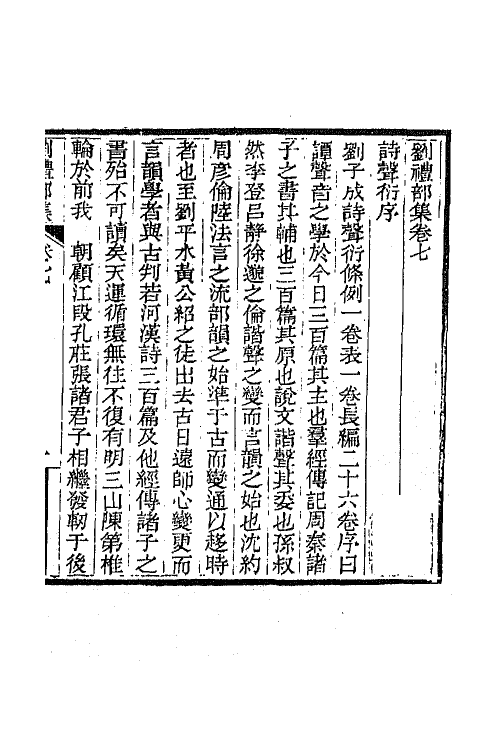 劉禮部集卷七
詩聲衍序
劉子成詩聲衍條例一卷表一卷長編二十六卷序曰
譚聲音之學於今日三百篇其主也羣經傳記周秦諸
子之書其輔也三百篇其原也說文諧聲其委也孫叔
然李登呂靜徐邈之倫諧聲之變而言韻之始也沈約
周彥倫陸法言之流部韻之始準于古而變通以趍時
者也至劉平水黃公紹之徒出去古日遠師心變更而
言韻學者與古判若河漢詩三百篇及他經傳諸子之
書殆不可讀矣天運循環無往不復有明三山陳第椎
輪於前我 朝顧江段孔莊張諸君子相繼發軔于後
劉禮部集 卷七